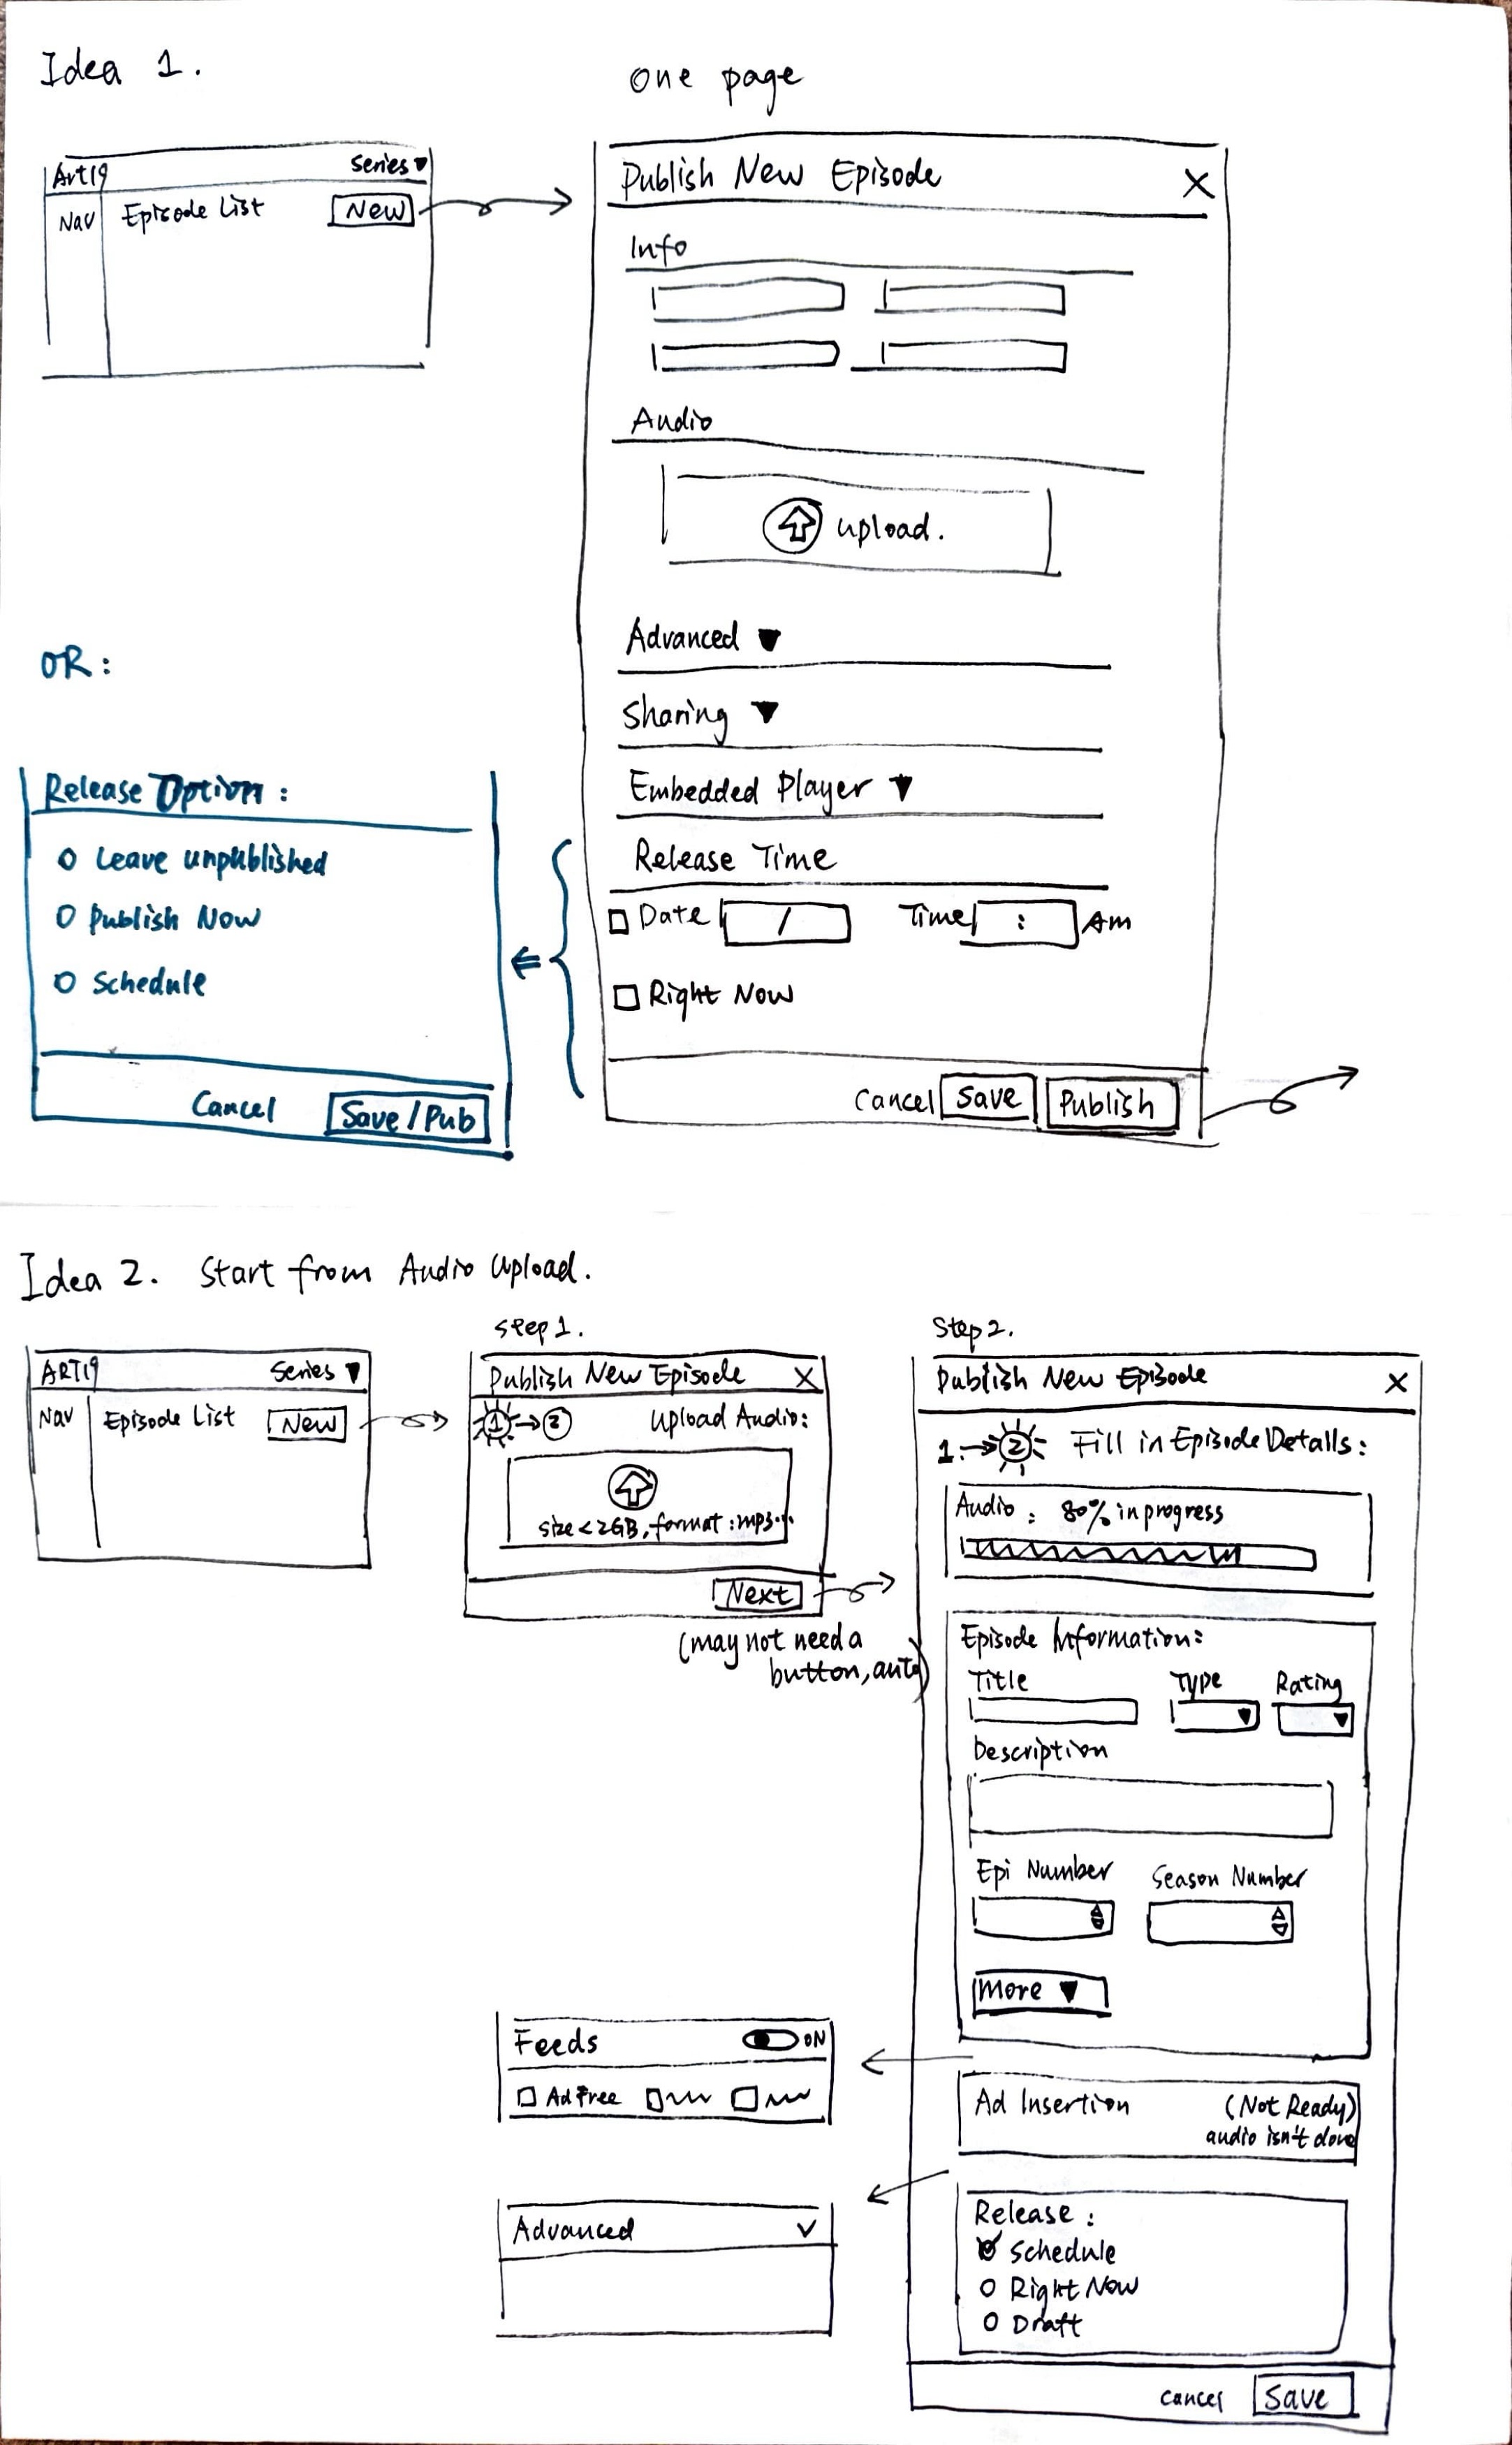 Idea 1.
one page
Art19 Series
Nav Episode List New
Publish New Episode X
Info
Audio
upload.
Advanced
Sharing
Embedded Player
Release Time
Date / Time : Am
Right Now
Cancel Save Publish
OR:
Release Option:
Leave unpublished
Publish Now
Schedule
Cancel Save/Pub
Idea 2. Start from Audio Upload.
ART19 Series
Nav Episode List New
Step 1.
Publish New Episode X
1 → 2 Upload Audio:
size < 2GB, format: mp3...
Next
(may not need a
button, auto)
Step 2.
Publish New Episode X
1. → 2 Fill in Episode Details:
Audio: 80% in progress
Episode Information:
Title Type Rating
Description
Epi Number Season Number
More
Feeds ON
Ad Free
Ad Insertion (Not Ready)
audio isn't done
Advanced
Release:
Schedule
Right Now
Draft
Cancel Save